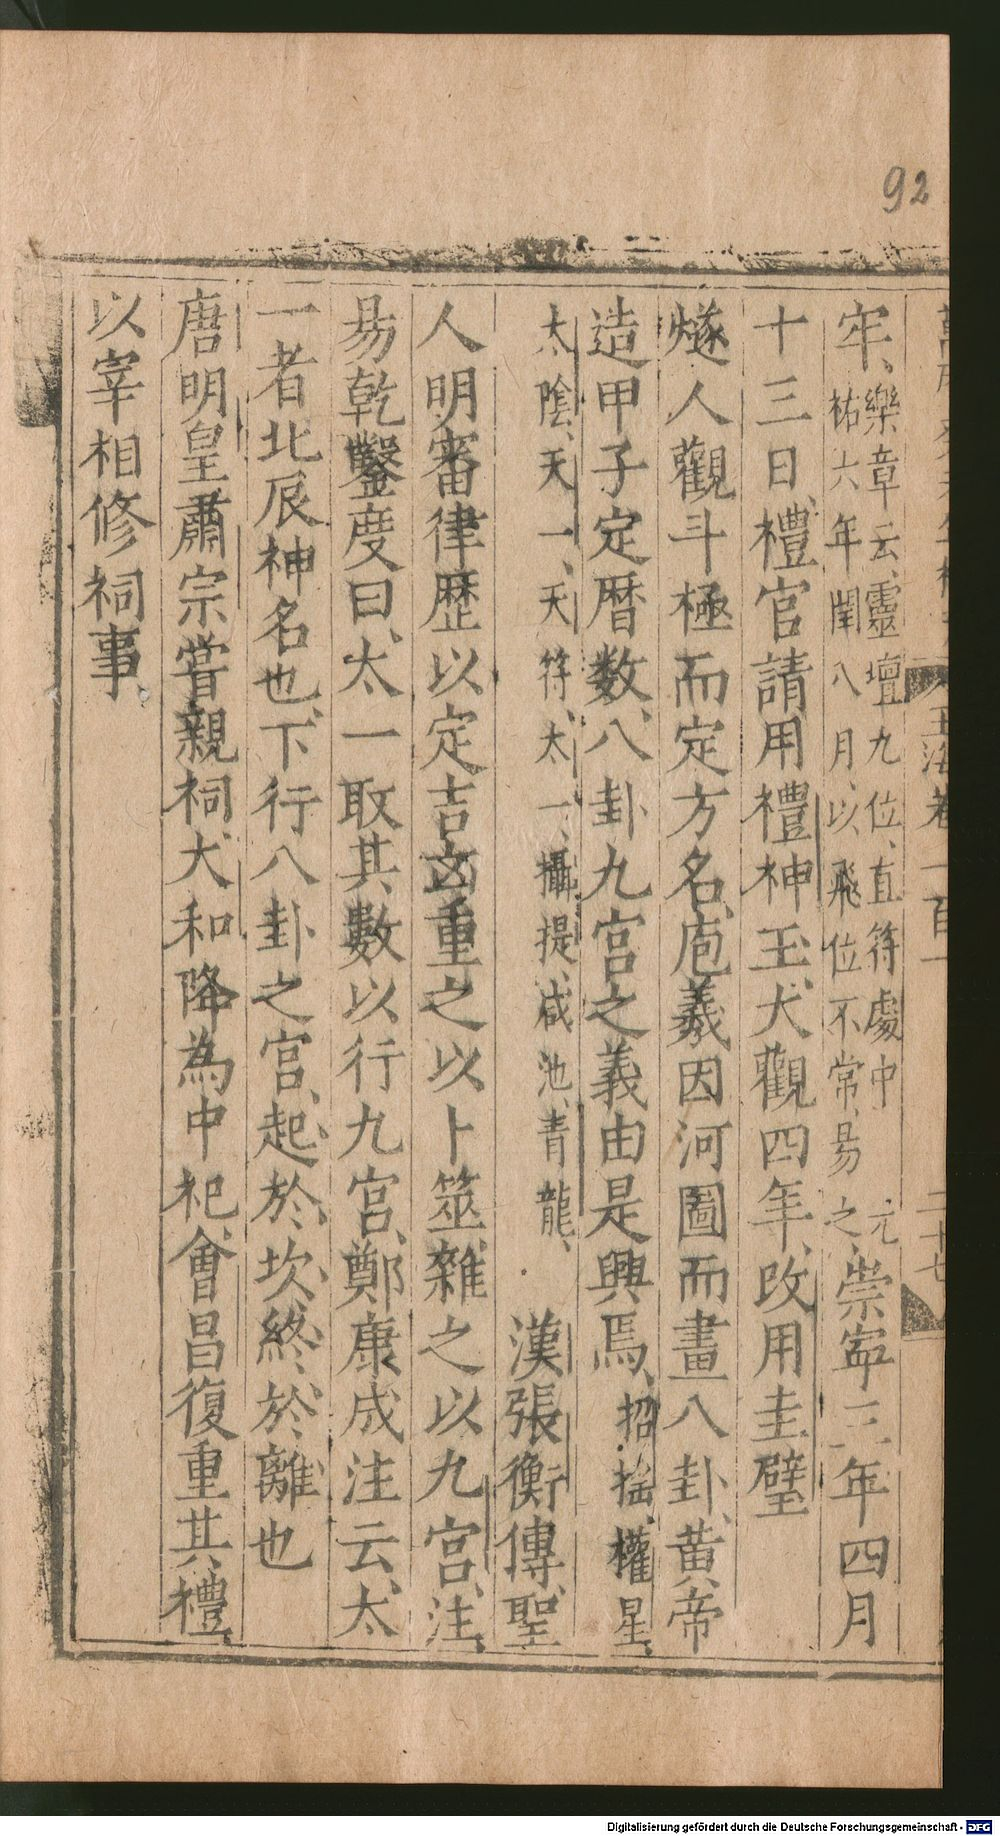 92
玉海卷一百一
二十七
牢、樂章云、靈壇九位、直符處中 元
祐六年閏八月、以飛位不常、易之、崇寧三年四月
十三日、禮官請用禮神玉、大觀四年、改用圭璧
燧人觀斗極而定方名、庖羲因河圖而畫八卦、黃帝
造甲子定曆数、八卦九宮之義由是興焉、招搖、權星、
太陰、天一、天符、太一、攝提、咸池、青龍、 漢張衡傳、聖
人明審律歷以定吉凶重之以卜筮、雜之以九宮、注、
易乾鑿度曰、太一取其數以行九宮、鄭康成注云、太
一者北辰神名也、下行八卦之宮、起於坎、終於離也
唐明皇肅宗嘗親祠、大和降為中祀、會昌復重其禮、
以宰相修祠事、
Digitalisierung gefördert durch die Deutsche Forschungsgemeinschaft - DFG